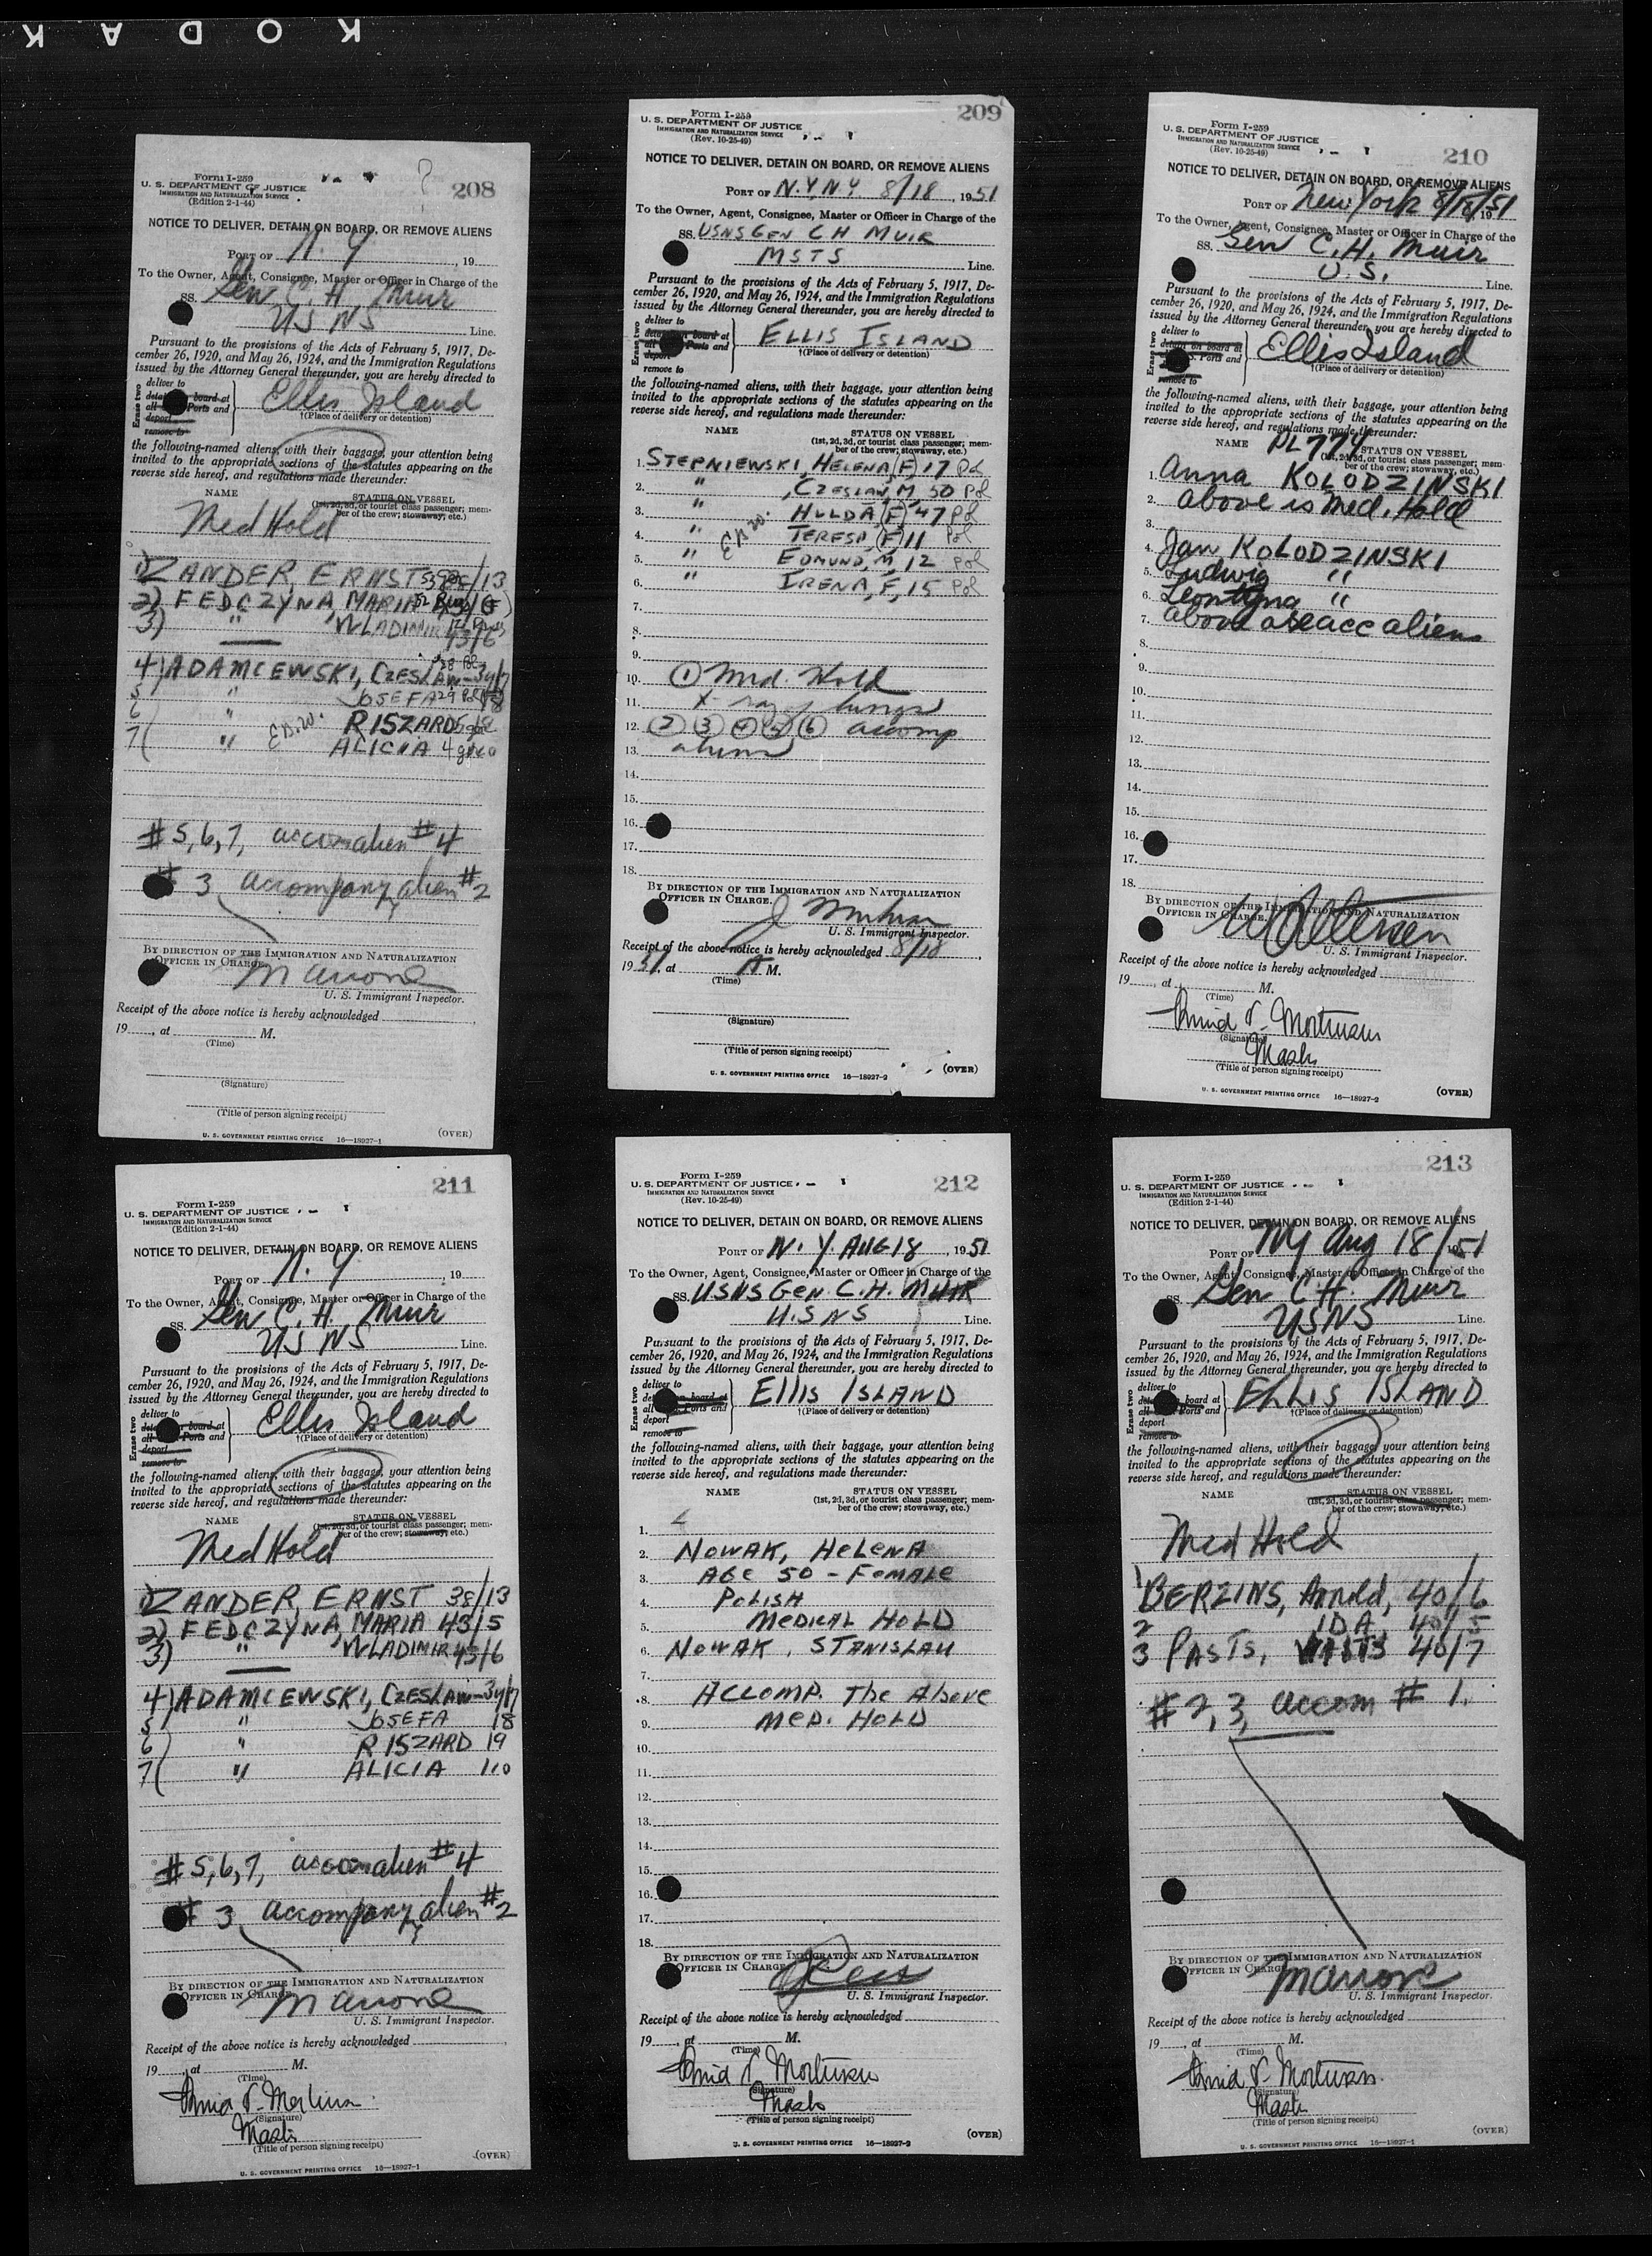 KODAK
208
Form I-259
U. S. DEPARTMENT OF JUSTICE
IMMIGRATION AND NATURALIZATION SERVICE
(Edition 2-1-44)
NOTICE TO DELIVER, DETAIN ON BOARD, OR REMOVE ALIENS
PORT OF N. Y , 19
To the Owner, Agent, Consignee, Master or Officer in Charge of the
SS. Gen C. H. Muir
US NS Line.
Pursuant to the provisions of the Acts of February 5, 1917, De-
cember 26, 1920, and May 26, 1924, and the Immigration Regulations
issued by the Attorney General thereunder, you are hereby directed to
deliver to
board at
all Ports and
deport
remove to
Erase two
Ellis Island
†(Place of delivery or detention)
the following-named aliens, with their baggage, your attention being
invited to the appropriate sections of the statutes appearing on the
reverse side hereof, and regulations made thereunder:
NAME STATUS ON VESSEL
(1st, 2d, 3d, or tourist class passenger; mem-
ber of the crew; stowaway, etc.)
Med Hold
1) ZANDER, ERNST /13
2) FEDCZYNA, MARIA
3) " WLADIMIR 43/6
4) ADAMCEWSKI, CZESLAW
5 " JOSEFA 29 Pol
6 " RISZARD
7 " ALICIA 4
#5,6,7, accom alien #4
# 3 accompany alien #2
BY DIRECTION OF THE IMMIGRATION AND NATURALIZATION
OFFICER IN CHARGE.
Marrone
U. S. Immigrant Inspector.
Receipt of the above notice is hereby acknowledged
19 , at M.
(Time)
(Signature)
(Title of person signing receipt)
U. S. GOVERNMENT PRINTING OFFICE 16—18927-1
(OVER)
209
Form I-259
U. S. DEPARTMENT OF JUSTICE
IMMIGRATION AND NATURALIZATION SERVICE
(Rev. 10-25-49)
NOTICE TO DELIVER, DETAIN ON BOARD, OR REMOVE ALIENS
PORT OF N.Y, N.Y. 8/18 , 1951
To the Owner, Agent, Consignee, Master or Officer in Charge of the
SS. USNS GEN C H MUIR
MSTS Line.
Pursuant to the provisions of the Acts of February 5, 1917, De-
cember 26, 1920, and May 26, 1924, and the Immigration Regulations
issued by the Attorney General thereunder, you are hereby directed to
deliver to
on board at
all Ports and
deport
remove to
Erase two
ELLIS ISLAND
†(Place of delivery or detention)
the following-named aliens, with their baggage, your attention being
invited to the appropriate sections of the statutes appearing on the
reverse side hereof, and regulations made thereunder:
NAME STATUS ON VESSEL
(1st, 2d, 3d, or tourist class passenger; mem-
ber of the crew; stowaway, etc.)
1. STEPNIEWSKI, HELENA, (F) 17 Pol
2. " , CZESLAW, M 50 Pol
3. " HULDA, (F) 47 Pol
4. " TERESA, (F) 11 Pol
5. " EDMUND, M, 12 Pol
6. " IRENA, F, 15 Pol
7.
8.
9.
10. ① Med. Hold
11. X-ray of lungs
12. ② ③ ④ ⑤ ⑥ accomp
13. aliens
14.
15.
16.
17.
18.
BY DIRECTION OF THE IMMIGRATION AND NATURALIZATION
OFFICER IN CHARGE.
U. S. Immigrant Inspector.
Receipt of the above notice is hereby acknowledged 8/18 ,
1951, at A M.
(Time)
(Signature)
(Title of person signing receipt)
U. S. GOVERNMENT PRINTING OFFICE 16—18927-2
(OVER)
210
Form I-259
U. S. DEPARTMENT OF JUSTICE
IMMIGRATION AND NATURALIZATION SERVICE
(Rev. 10-25-49)
NOTICE TO DELIVER, DETAIN ON BOARD, OR REMOVE ALIENS
PORT OF New York 8/18/51
To the Owner, Agent, Consignee, Master or Officer in Charge of the
SS. Gen C. H. Muir
U.S. Line.
Pursuant to the provisions of the Acts of February 5, 1917, De-
cember 26, 1920, and May 26, 1924, and the Immigration Regulations
issued by the Attorney General thereunder, you are hereby directed to
deliver to
detain on board at
Ports and
remove to
Erase two
Ellis Island
†(Place of delivery or detention)
the following-named aliens, with their baggage, your attention being
invited to the appropriate sections of the statutes appearing on the
reverse side hereof, and regulations made thereunder:
NAME PL774 STATUS ON VESSEL
(1st, 2d, 3d, or tourist class passenger; mem-
ber of the crew; stowaway, etc.)
1. Anna KOLODZINSKI
2. above is Med. Hold
3.
4. Jan KOLODZINSKI
5. Ludwig "
6. Leontyna "
7. above are acc aliens
8.
9.
10.
11.
12.
13.
14.
15.
16.
17.
18.
BY DIRECTION OF THE IMMIGRATION AND NATURALIZATION
OFFICER IN CHARGE.
U. S. Immigrant Inspector.
Receipt of the above notice is hereby acknowledged
19 , at M.
(Time)
(Signature)
(Title of person signing receipt)
U. S. GOVERNMENT PRINTING OFFICE 16—18927-2
(OVER)
211
Form I-259
U. S. DEPARTMENT OF JUSTICE
IMMIGRATION AND NATURALIZATION SERVICE
(Edition 2-1-44)
NOTICE TO DELIVER, DETAIN ON BOARD, OR REMOVE ALIENS
PORT OF N. Y , 19
To the Owner, Agent, Consignee, Master or Officer in Charge of the
SS. Gen C. H. Muir
US NS Line.
Pursuant to the provisions of the Acts of February 5, 1917, De-
cember 26, 1920, and May 26, 1924, and the Immigration Regulations
issued by the Attorney General thereunder, you are hereby directed to
deliver to
board at
all Ports and
deport
remove to
Erase two
Ellis Island
†(Place of delivery or detention)
the following-named aliens, with their baggage, your attention being
invited to the appropriate sections of the statutes appearing on the
reverse side hereof, and regulations made thereunder:
NAME STATUS ON VESSEL
(1st, 2d, 3d, or tourist class passenger; mem-
ber of the crew; stowaway, etc.)
Med Hold
1) ZANDER, ERNST 38/13
2) FEDCZYNA, MARIA 43/5
3) " WLADIMIR 43/6
4) ADAMCEWSKI, CZESLAW-34/7
5 " JOSEFA 18
6 " RISZARD 19
7 " ALICIA 110
#5,6,7, accom alien #4
# 3 accompany alien #2
BY DIRECTION OF THE IMMIGRATION AND NATURALIZATION
OFFICER IN CHARGE.
Marrone
U. S. Immigrant Inspector.
Receipt of the above notice is hereby acknowledged
19 , at M.
(Time)
(Signature)
(Title of person signing receipt)
U. S. GOVERNMENT PRINTING OFFICE 16—18927-1
(OVER)
212
Form I-259
U. S. DEPARTMENT OF JUSTICE
IMMIGRATION AND NATURALIZATION SERVICE
(Rev. 10-25-49)
NOTICE TO DELIVER, DETAIN ON BOARD, OR REMOVE ALIENS
PORT OF N. Y. AUG 18 , 1951
To the Owner, Agent, Consignee, Master or Officer in Charge of the
SS. USNS GEN. C. H. MUIR
U.S.N.S Line.
Pursuant to the provisions of the Acts of February 5, 1917, De-
cember 26, 1920, and May 26, 1924, and the Immigration Regulations
issued by the Attorney General thereunder, you are hereby directed to
deliver to
on board at
all Ports and
deport
remove to
Erase two
ELLIS ISLAND
†(Place of delivery or detention)
the following-named aliens, with their baggage, your attention being
invited to the appropriate sections of the statutes appearing on the
reverse side hereof, and regulations made thereunder:
NAME STATUS ON VESSEL
(1st, 2d, 3d, or tourist class passenger; mem-
ber of the crew; stowaway, etc.)
1.
2. NOWAK, HELENA
3. AGE 50 - FEMALE
4. POLISH
5. MEDICAL HOLD
6. NOWAK, STANISLAW
7.
8. ACCOMP. The Above
9. MED. HOLD
10.
11.
12.
13.
14.
15.
16.
17.
18.
BY DIRECTION OF THE IMMIGRATION AND NATURALIZATION
OFFICER IN CHARGE.
U. S. Immigrant Inspector.
Receipt of the above notice is hereby acknowledged
19 , at M.
(Time)
(Signature)
(Title of person signing receipt)
U. S. GOVERNMENT PRINTING OFFICE 16—18927-2
(OVER)
213
Form I-259
U. S. DEPARTMENT OF JUSTICE
IMMIGRATION AND NATURALIZATION SERVICE
(Edition 2-1-44)
NOTICE TO DELIVER, DETAIN ON BOARD, OR REMOVE ALIENS
PORT OF NY Aug 18/1951
To the Owner, Agent, Consignee, Master or Officer in Charge of the
SS. Gen C. H. Muir
USNS Line.
Pursuant to the provisions of the Acts of February 5, 1917, De-
cember 26, 1920, and May 26, 1924, and the Immigration Regulations
issued by the Attorney General thereunder, you are hereby directed to
deliver to
board at
all Ports and
deport
remove to
Erase two
ELLIS ISLAND
†(Place of delivery or detention)
the following-named aliens, with their baggage, your attention being
invited to the appropriate sections of the statutes appearing on the
reverse side hereof, and regulations made thereunder:
NAME STATUS ON VESSEL
(1st, 2d, 3d, or tourist class passenger; mem-
ber of the crew; stowaway, etc.)
Med Hold
1 BERZINS, Arnold, 40/6
2 IDA 40/5
3 PASTS, 40/7
#2,3, accom # 1.
BY DIRECTION OF THE IMMIGRATION AND NATURALIZATION
OFFICER IN CHARGE.
Marrone
U. S. Immigrant Inspector.
Receipt of the above notice is hereby acknowledged
19 , at M.
(Time)
(Signature)
(Title of person signing receipt)
U. S. GOVERNMENT PRINTING OFFICE 16—18927-1
(OVER)